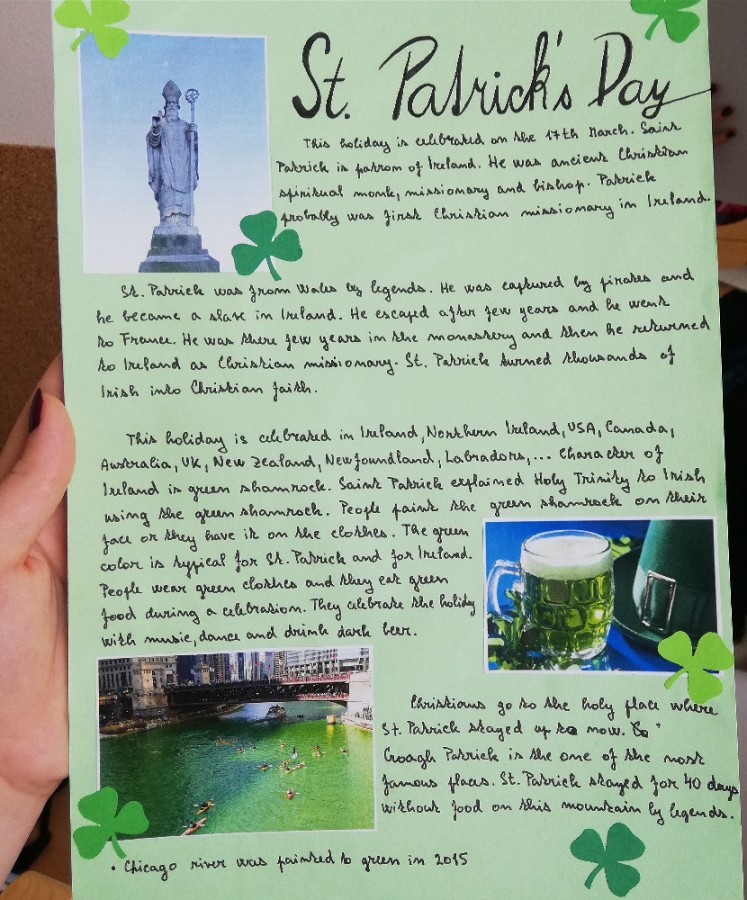 St. Patrick's Day
This holiday is celebrated on the 17th March. Saint
Patrick is patrom of Ireland. He was ancient Christian
spiritual monk, missionary and bishop. Patrick
probably was first Christian missionary in Ireland.
St. Patrick was from Wales by legends. He was captured by pirates and
he became a slave in Ireland. He escaped after few years and he went
to France. He was there few years in the monastery and then he returned
to Ireland as Christian missionary. St. Patrick turned thousands of
Irish into Christian faith.
This holiday is celebrated in Ireland, Northern Ireland, USA, Canada,
Australia, UK, New Zealand, Newfoundland, Labradors,... Character of
Ireland is green shamrock. Saint Patrick explained Holy Trinity to Irish
using the green shamrock. People paint the green shamrock on their
face or they have it on the clothes. The green
color is typical for St. Patrick and for Ireland.
People wear green clothes and they eat green
food during a celebration. They celebrate the holiday
with music, dance and drink dark beer.
Christians go to the holy place where
St. Patrick stayed up to now.
Croagh Patrick is the one of the most
famous places. St. Patrick stayed for 40 days
without food on this mountain by legends.
• Chicago river was painted to green in 2015